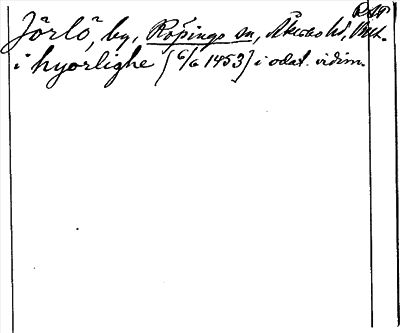 Jörlö, by, Röpinge sn, Åkerbo hd,
i hyorlighe [6/6 1453] i odat. vidim.